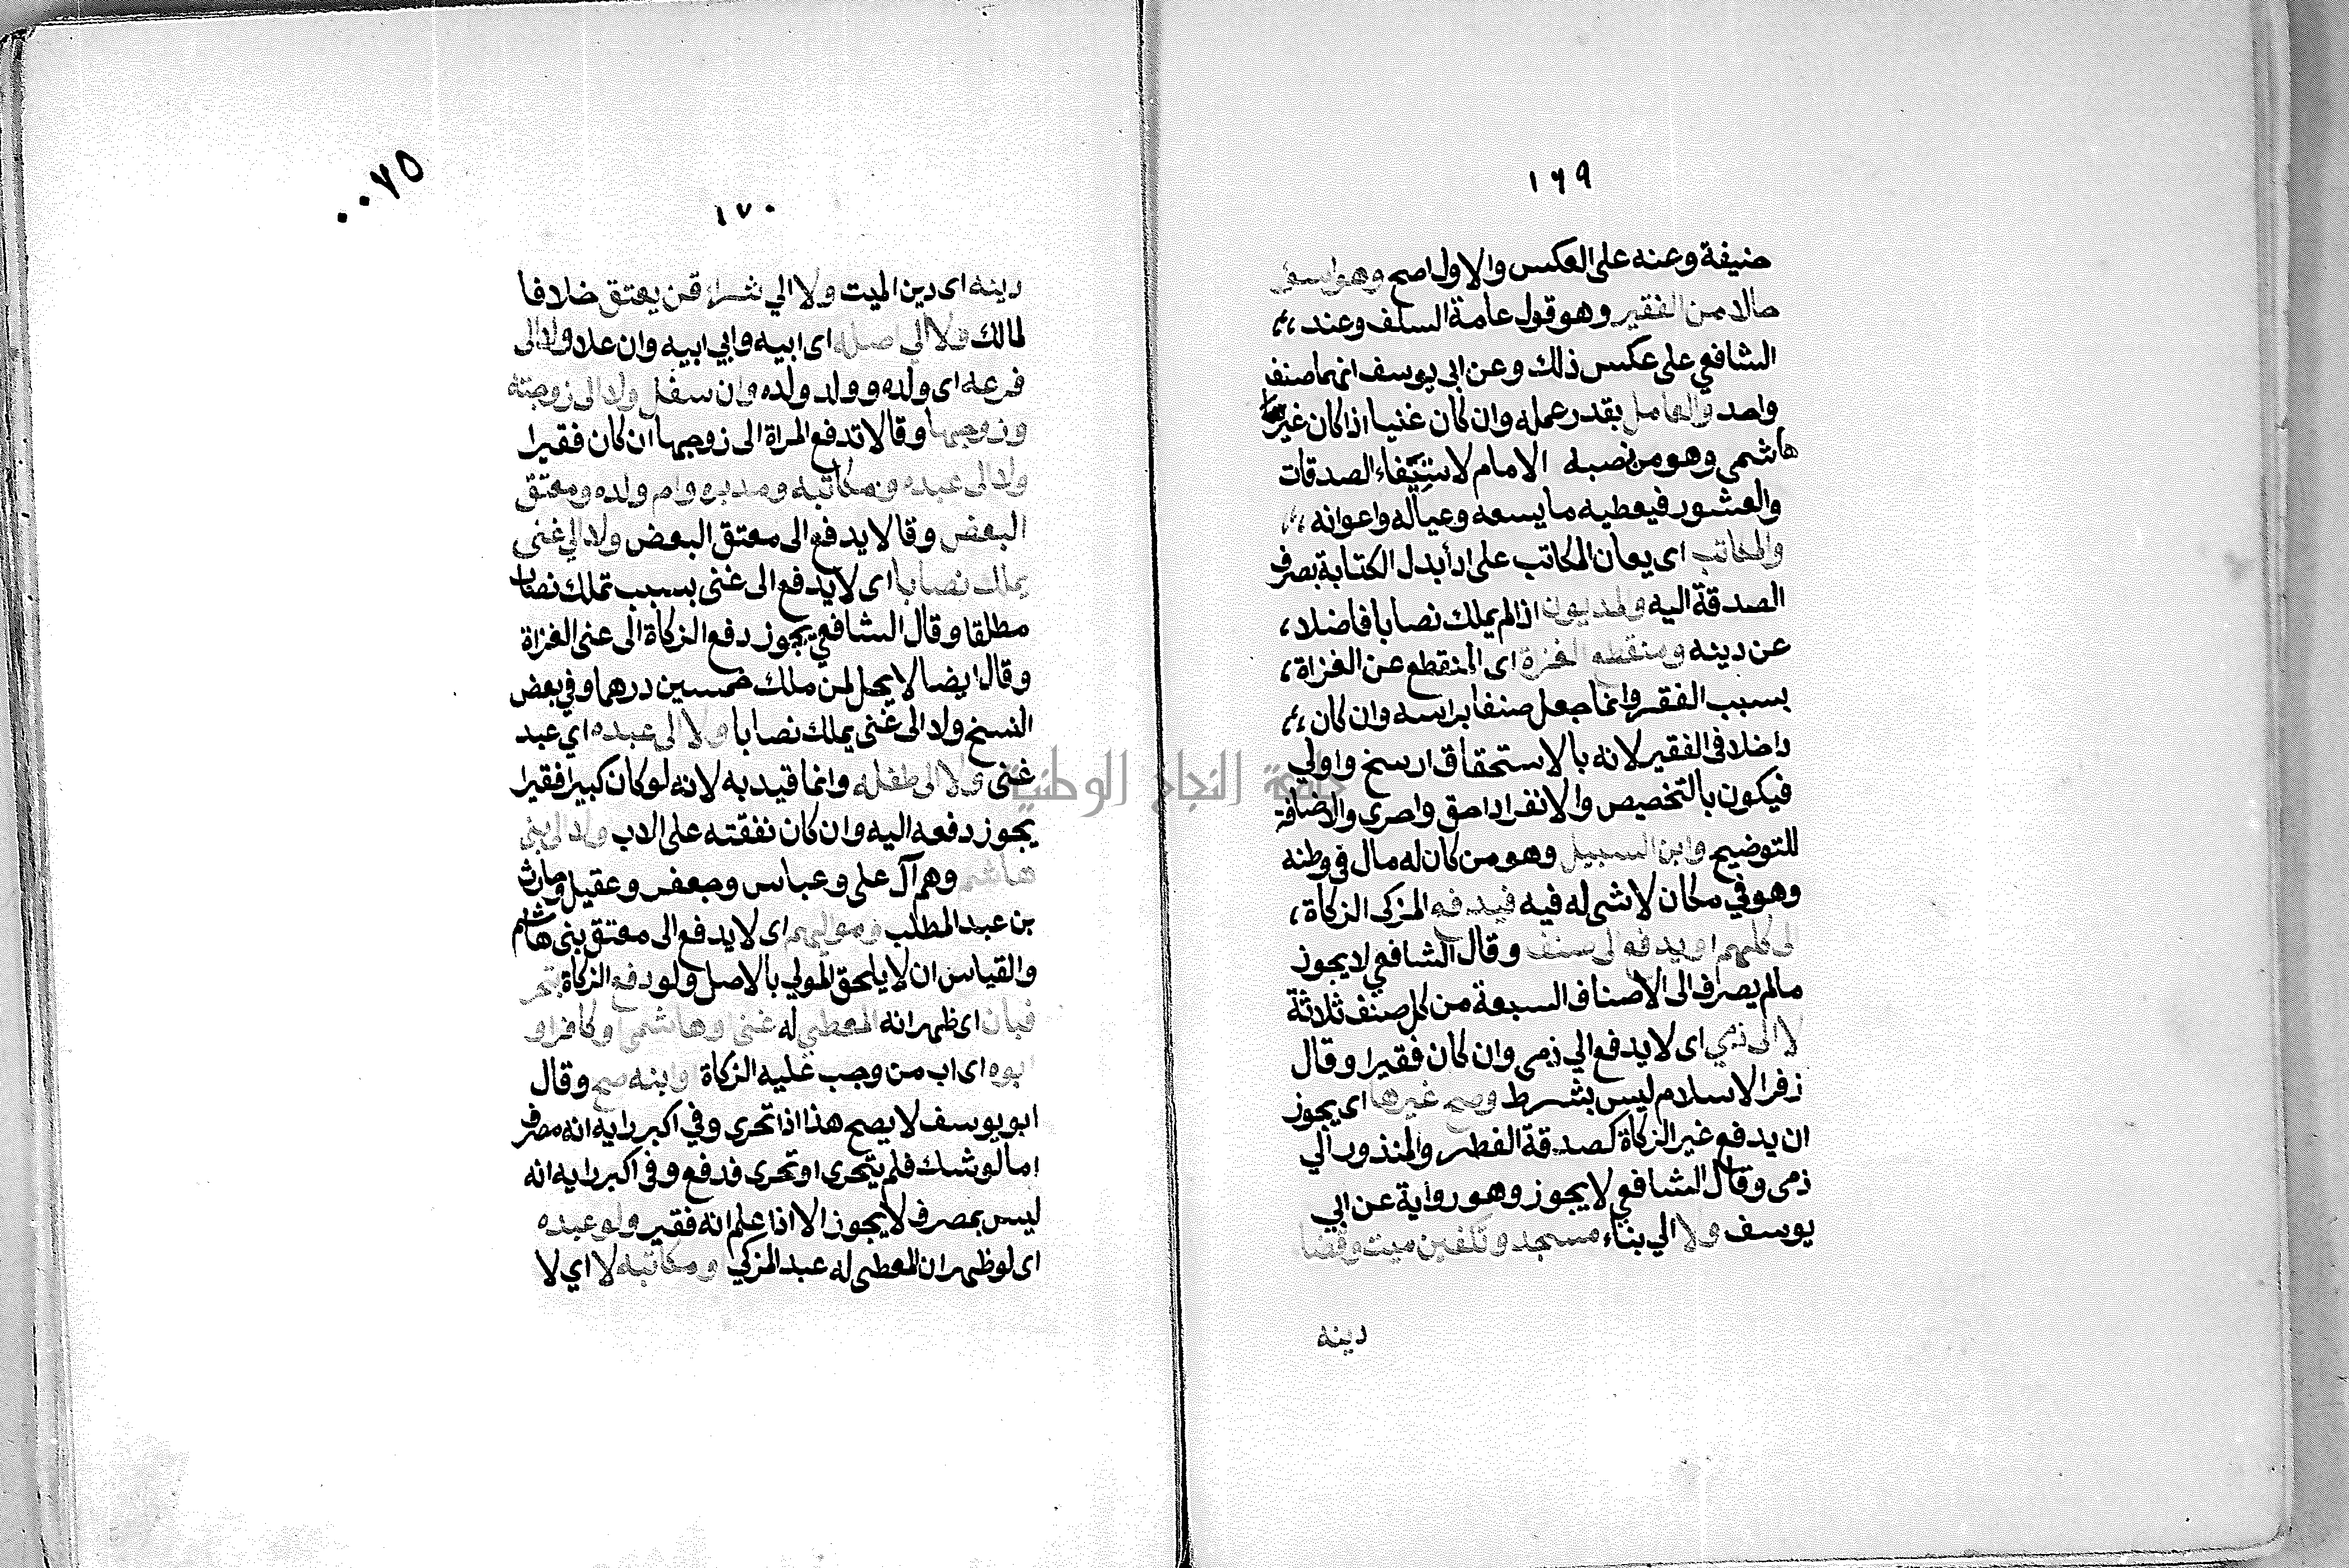 ١٦٩
حنيفة وعنه على العكس والاول اصح وهو اسوء
حالا من الفقير وهو قول عامة السلف وعند
الشافعي على عكس ذلك وعن ابى يوسف انهما صنف
واحد والعامل بقدر عمله وان كان غنيا اذا كان غير
هاشمى وهو من نصبه الامام لاستيفاء الصدقات
والعشور فيعطيه ما يسعه وعياله واعوانه
والمكاتب اى يعان المكاتب على اداء بدل الكتابة بصرف
الصدقة اليه والمديون اذا لم يملك نصابا فاضلا،
عن دينه ومنقطع الغزاة اى المنقطع عن الغزاة،
بسبب الفقر وانما جعل صنفا براسه وان كان
داخلا فى الفقير لانه بالاستحقاق ارسخ واولي
فيكون بالتخصيص والانفراد احق واحرى والاضافة
للتوضيح وابن السبيل وهو من كان له مال فى وطنه
وهو في مكان لا شى له فيه فيدفع المزكى الزكاة،
الى كلهم او يدفع الى صنف وقال الشافعي لا يجوز
مالم يصرف الى الاصناف السبعة من كل صنف ثلاثة
لا الى ذمي اى لا يدفع الي ذمى وان كان فقيرا وقال
زفر الاسلام ليس بشرط وصح غيرها اى يجوز
ان يدفع غير الزكاة كصدقة الفطر والمنذور الي
ذمى وقال الشافعي لا يجوز وهو رواية عن ابي
يوسف ولا الي بناء مسجد وتكفين ميت وقضاء
دينه
٠٠٧٥
١٧٠
دينه اى دين الميت ولا الي شراء قن يعتق خلافا
لمالك ولا الي اصله اى ابيه وابي ابيه وان علا ولا الى
فرعه اى ولده وولد ولده وان سفل ولا الى زوجته
وزوجها وقالا تدفع المراة الى زوجها ان كان فقيرا
ولا الى عبده ومكاتبه ومدبره وام ولده ومعتق
البعض وقالا يدفع الى معتق البعض ولا الي غنى
يملك نصابا اى لا يدفع الى غنى بسبب تملك نصاب
مطلقا وقال الشافعي يجوز دفع الزكاة الى غنى الغزاة
وقال ايضا لا يحل لمن ملك خمسين درهما وفي بعض
النسخ ولا الى غنى يملك نصابا ولا الى عبده اي عبد
غنى ولا الى طفله وانما قيد به لانه لو كان كبيرا فقيرا
يجوز دفعه اليه وان كان نفقته على الاب ولا الى بنى
هاشم وهم آل على وعباس وجعفر وعقيل وحارث
بن عبد المطلب ومواليهم اى لا يدفع الى معتق بنى هاشم
والقياس ان لا يلحق المولي بالاصل ولو دفع الزكاة بتحر
فبان اى ظهر انه المعطي له غنى او هاشمى او كافر او
ابوه اى اب من وجب عليه الزكاة او ابنه صح وقال
ابو يوسف لا يصح هذا اذا تحرى وفي اكبر رايه انه مصرف
اما لو شك فلم يتحرى او تحرى فدفع وفى اكبر رايه انه
ليس بمصرف لا يجوز الا اذا علم انه فقير ولو عبده
اى لو ظهر ان المعطى له عبد المزكي ومكاتبه لا اي لا
جامعة النجاح الوطنية